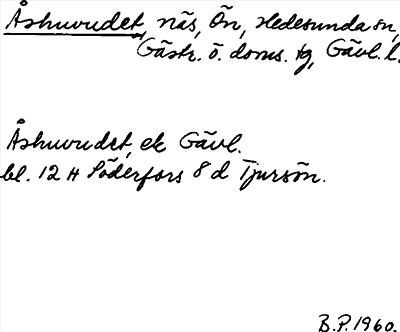 Åshuvudet, näs, Ön, Hedesunda sn,
Gästr. ö. doms. tg, Gävl. l.
Åshuvudet, ek Gävl.
bl. 12 H Söderfors 8 d Tjursön.
B.P. 1960.